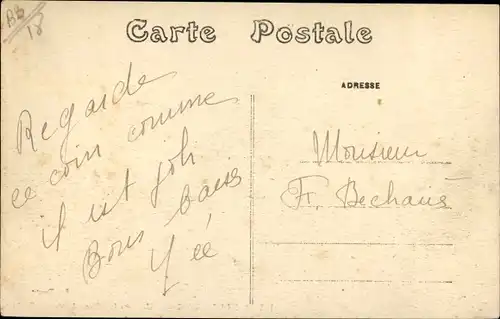 BB
18
Carte Postale
ADRESSE
Regarde
ce coin comme
il est joli
Bons baisers
Monsieur
Fr. Bechaus